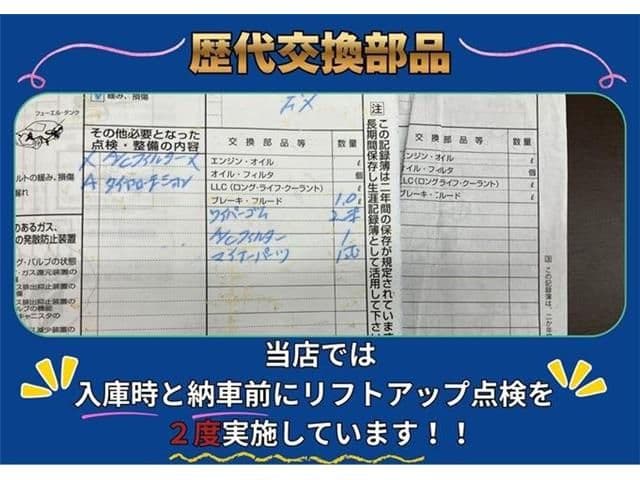 歴代交換部品
フューエル・タンク
緩み、損傷
その他必要となった
点検・整備の内容
交換部品等
数量
エンジン・オイル
ℓ
オイル・フィルタ
個
LLC(ロング・ライフ・クーラント)
ℓ
ブレーキ・フルード
1.0ℓ
ワイパーゴム
2本
A/Cフィルター
1
X A/Cフィルター X
A タイヤローテーション
ルトの緩み、損傷
漏れ
のあるガス、
の発散防止装置
グ・バルブの状態
・ガス還元装置の
ス排出抑止装置の
ス排出抑止装置の
ルブの機能
キャニスタの
ス減少装置の
注
この記録簿は二年間の保存が規定されています
長期間保存し生涯記録簿として活用して下さい
交換部品等
数量
エンジン・オイル
ℓ
オイル・フィルタ
個
LLC(ロング・ライフ・クーラント)
ℓ
ブレーキ・フルード
ℓ
当店では
入庫時と納車前にリフトアップ点検を
2度実施しています！！